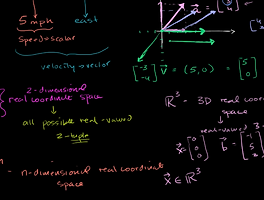 5 mph east
speed→scalar
velocity→vector
[-3 -4] v = (5, 0) = [5 0]
2-dimensional
real coordinate space
all possible real-valued
2-tuple
ℝ³ - 3D real coord
space
real-valued 3-
x = [0 0 0] b =
n-dimensional real coordinate
space
x ∈ ℝ³